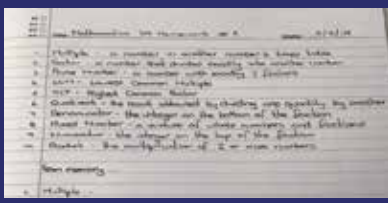 Mathematics
Multiple - a number in another number's times table
Factor - a number that divides exactly into another number
Prime Number - a number with exactly 2 factors
LCM - Lowest Common Multiple
HCF - Highest Common Factor
Quotient - the result obtained by dividing one quantity by another
Denominator - the integer on the bottom of the fraction
Mixed Number - a mixture of whole numbers and fractions
Numerator - the integer on the top of the fraction
Product - the multiplication of 2 or more numbers
From memory
Multiple -